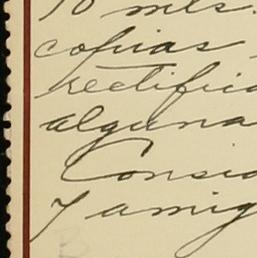 10 mls.
copias
rectific
alguna
Consid
y amig